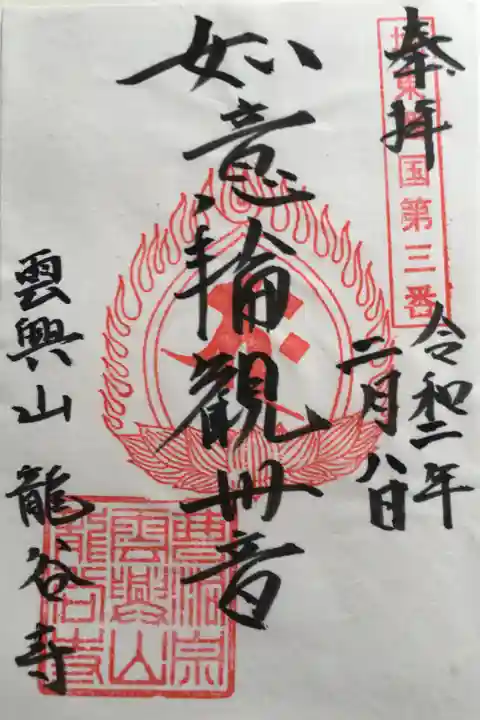 奉拝
東国第三番
令和二年
二月八日
如意輪觀世音
雲興山 龍谷寺
曹洞宗
雲興山
龍谷寺